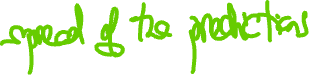 spread of the predictions